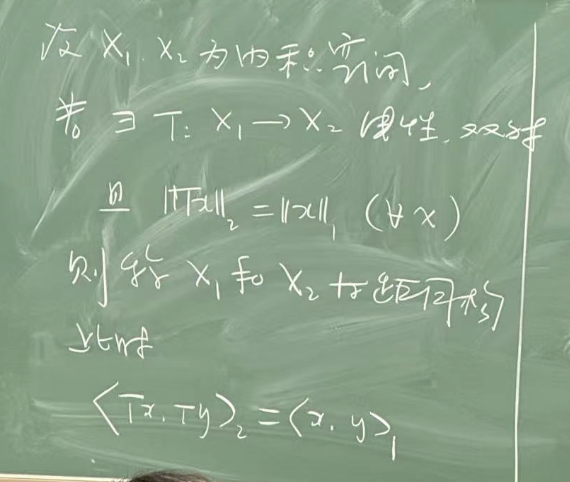 设 X₁, X₂ 为内积空间,
若 ∃ T: X₁ → X₂ 线性, 双射
且 ‖Tx‖₂ = ‖x‖₁ (∀x)
则称 X₁ 和 X₂ 等距同构
此时
⟨Tx, Ty⟩₂ = ⟨x, y⟩₁